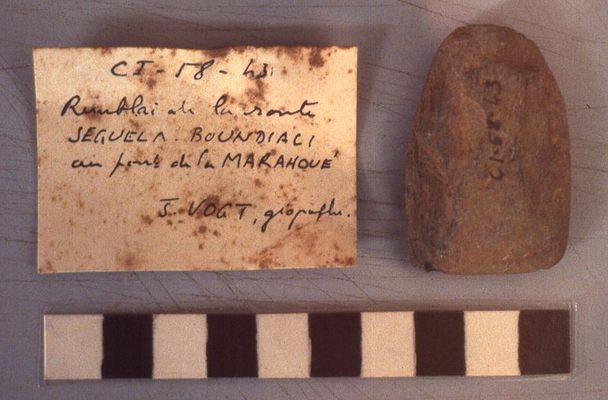 CI-58-43
Remblai de la route
SEGUELA-BOUNDIALI
au pont de la MARAHOUE
J. VOGT, géographe.
CI-58-43